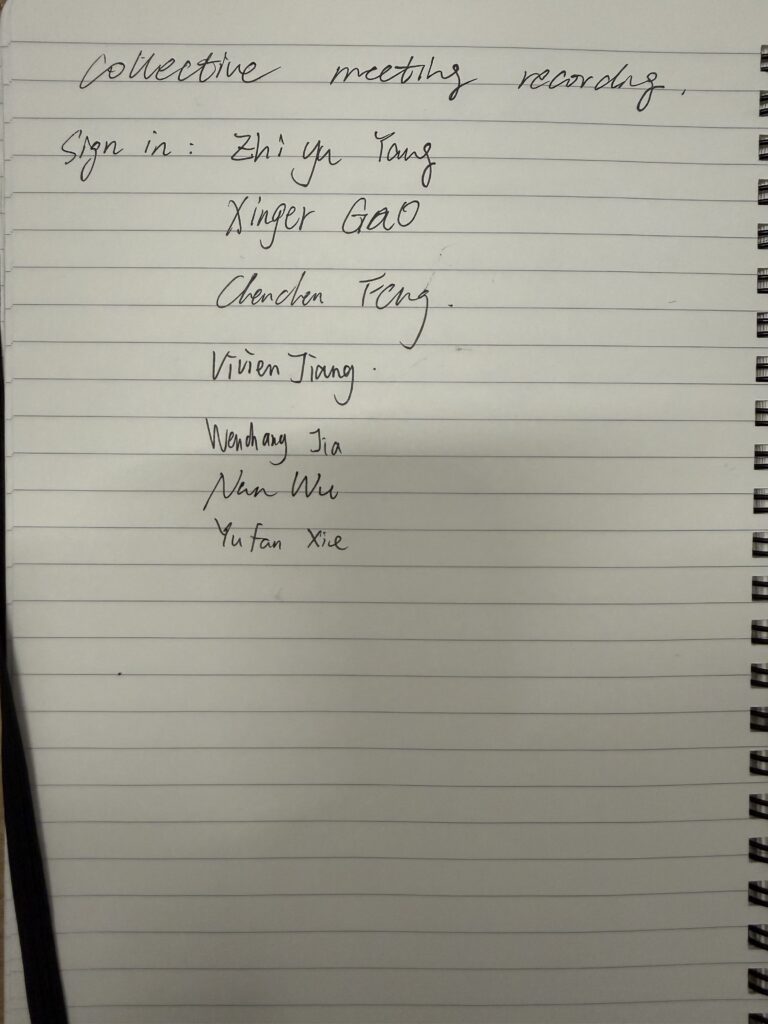 Collective meeting recording.
Sign in: Zhiyu Yang
Xinger Gao
Chenchen Feng.
Vivien Jiang.
Wenchang Jia
Nan Wu
Yufan Xie